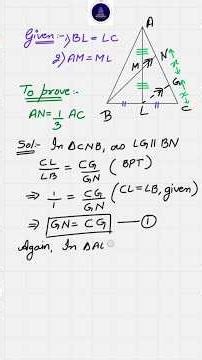 Given:- 1) BL = LC
2) AM = ML
To prove:-
AN = 1/3 AC
A
M
N
G
B
L
C
x
x
Sol:- In ΔCNB, as LG ∥ BN
CL/LB = CG/GN (BPT)
⇒ 1/1 = CG/GN (CL = LB, given)
⇒ GN = CG — ①
Again, In ΔAL